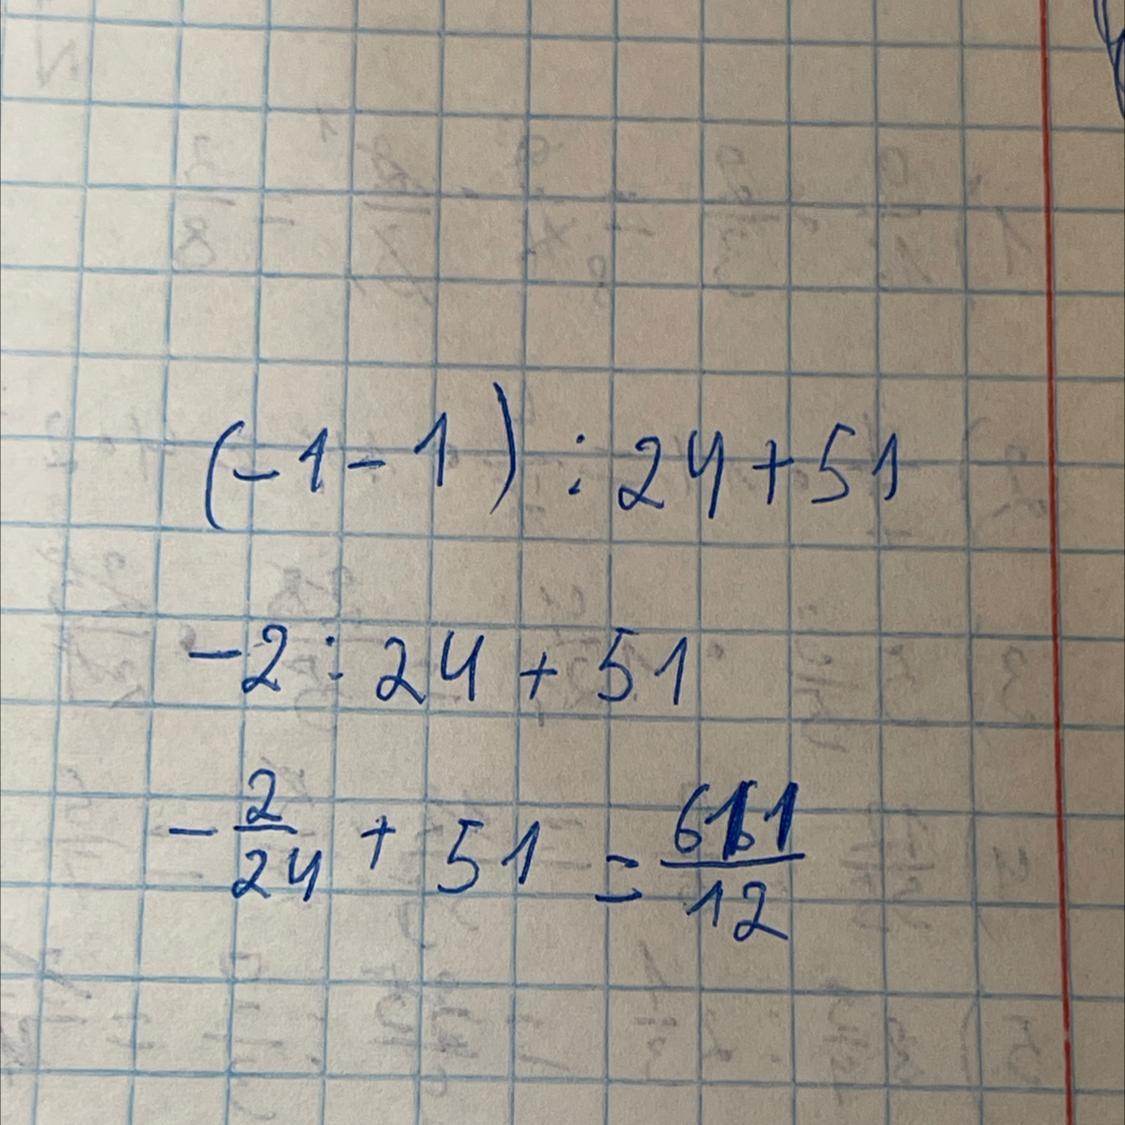 (-1-1) : 24+51
-2 : 24 + 51
-2/24 + 51 = 611/12